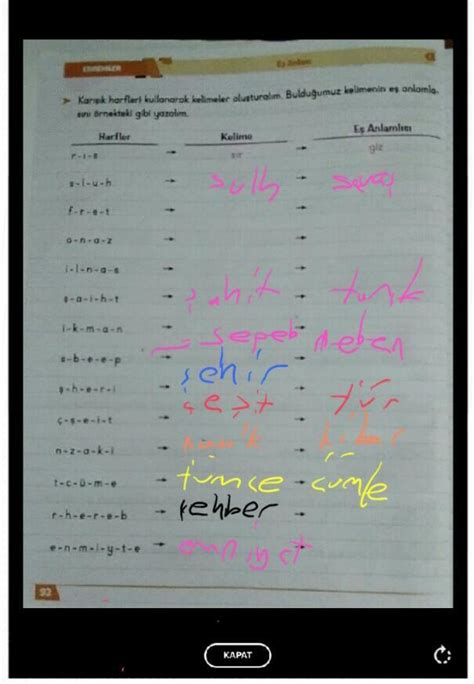 Eş Anlam
➤ Karışık harfleri kullanarak kelimeler oluşturalım. Bulduğumuz kelimenin eş anlamlı-
sını örnekteki gibi yazalım.
Harfler Kelime Eş Anlamlısı
r-ı-s → sır giz
s-l-u-h → sulh → savaş
f-r-s-t → →
a-n-a-z → →
i-l-n-a-s → →
ş-a-i-h-t → şahit → tanık
i-k-m-a-n → →
s-b-e-e-p → sepeb neben
ş-h-e-r-i → şehir
ç-ş-e-i-t → çeşit → tür
n-z-a-k-i → kibar
t-c-ü-m-e → tümce → cümle
r-h-e-r-e-b → rehber →
e-n-m-i-y-t-e → emniyet →
92
KAPAT